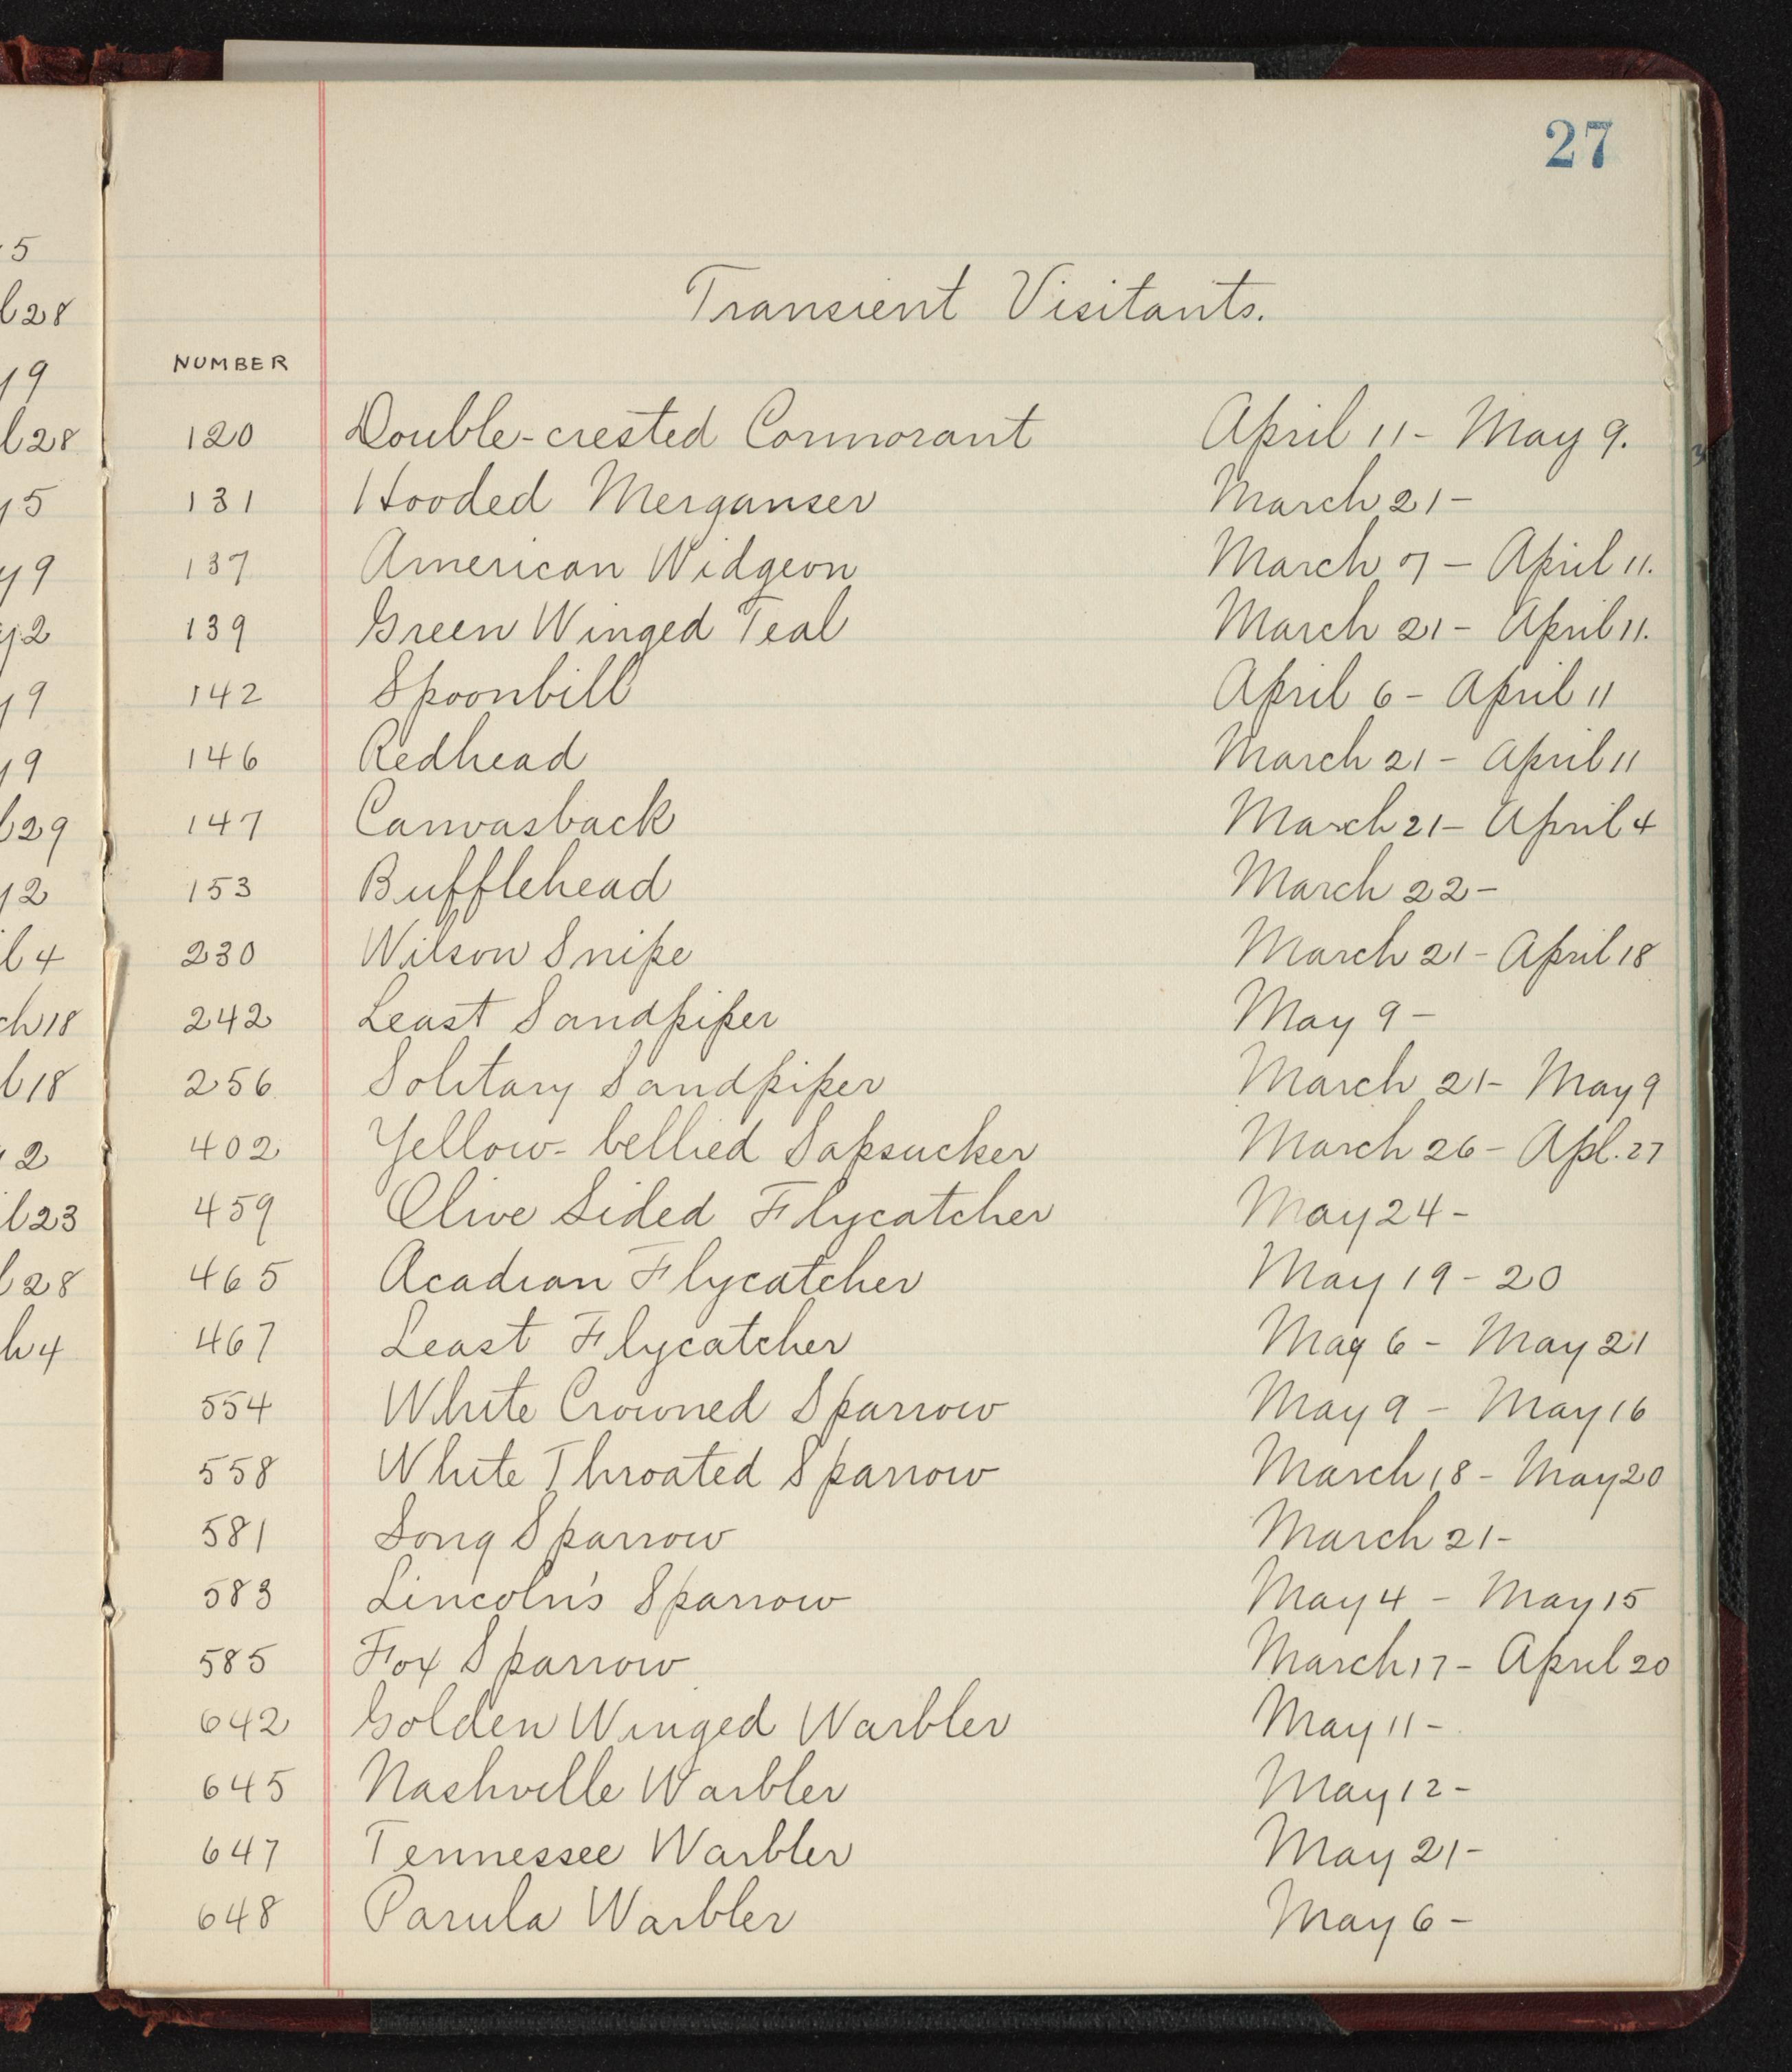 27
Transient Visitants.
NUMBER
120 Double-crested Cormorant April 11 - May 9.
131 Hooded Merganser March 21 -
137 American Widgeon March 7 - April 11.
139 Green Winged Teal March 21 - April 11.
142 Spoonbill April 6 - April 11
146 Redhead March 21 - April 11
147 Canvasback March 21 - April 4
153 Bufflehead March 22 -
230 Wilson Snipe March 21 - April 18
242 Least Sandpiper May 9 -
256 Solitary Sandpiper March 21 - May 9
402 Yellow-bellied Sapsucker March 26 - Apl. 27
459 Olive Sided Flycatcher May 24 -
465 Acadian Flycatcher May 19 - 20
467 Least Flycatcher May 6 - May 21
554 White Crowned Sparrow May 9 - May 16
558 White Throated Sparrow March 18 - May 20
581 Song Sparrow March 21 -
583 Lincoln's Sparrow May 4 - May 15
585 Fox Sparrow March 17 - April 20
642 Golden Winged Warbler May 11 -
645 Nashville Warbler May 12 -
647 Tennessee Warbler May 21 -
648 Parula Warbler May 6 -